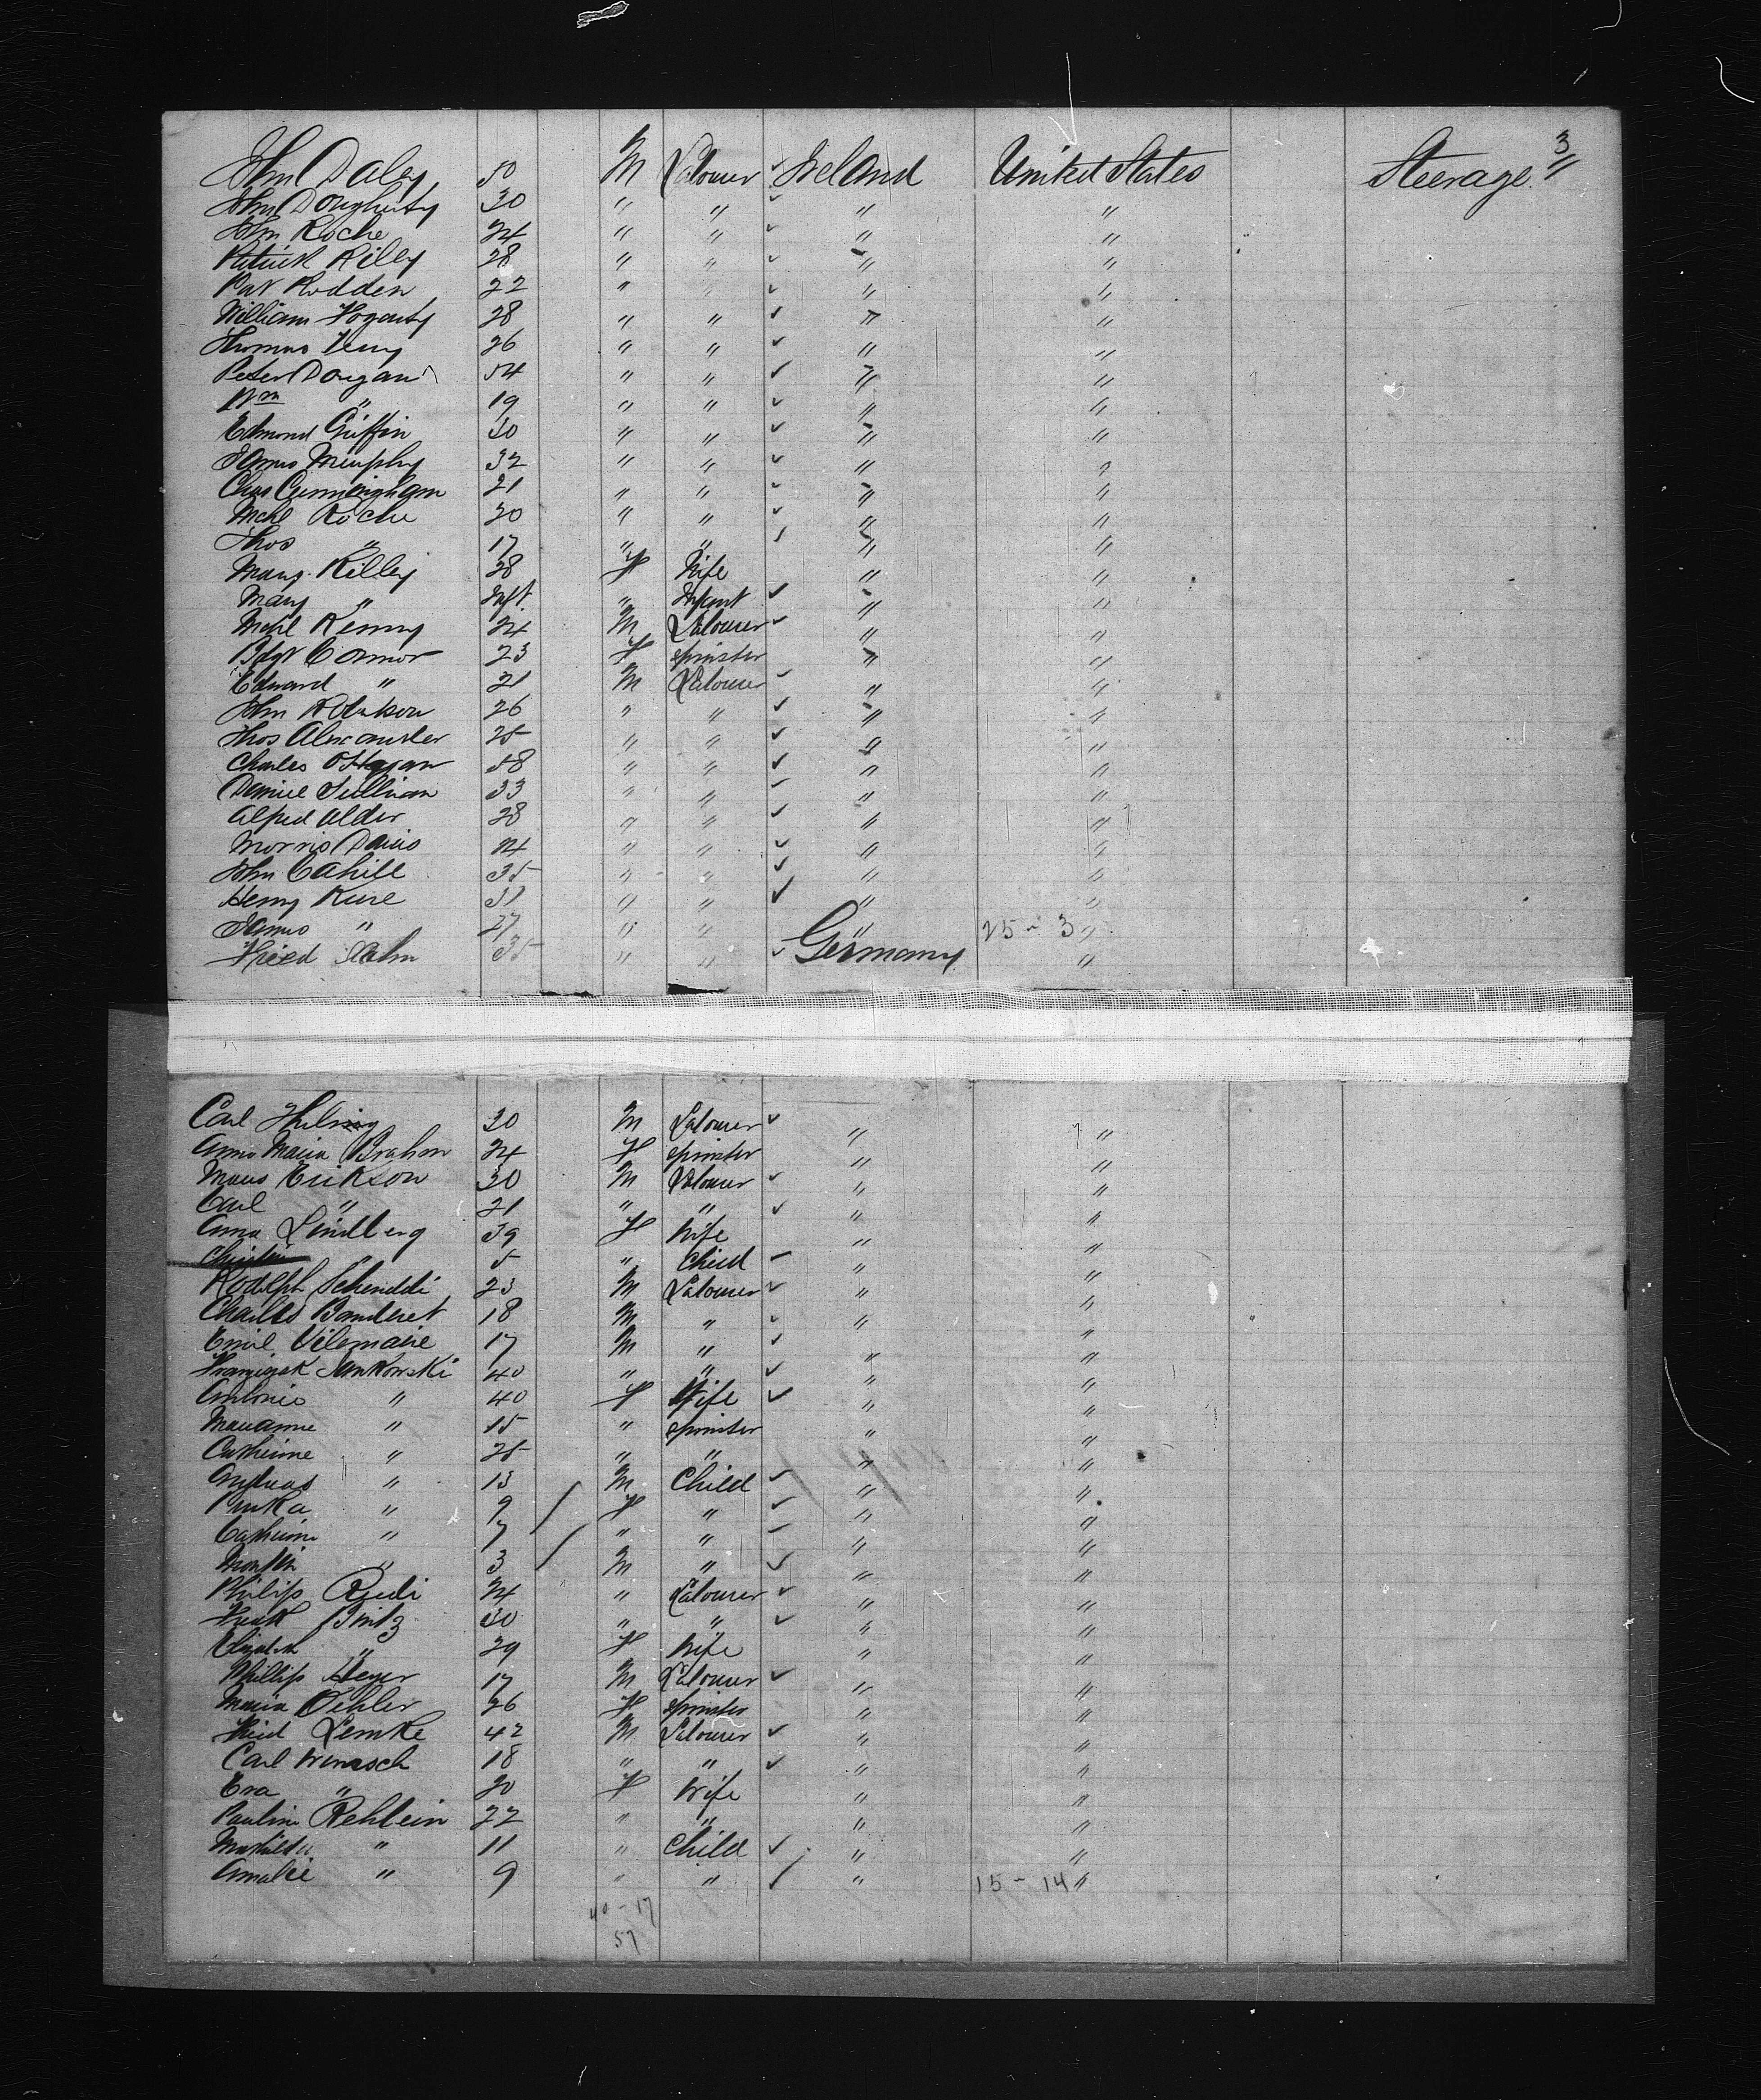 3
John Daley 50 M Labourer Ireland United States Steerage
John Dougherty 30 " " " "
John Roche 24 " " " "
Patrick Rilly 28 " " " "
Pat Rodden 22 " " " "
William Fogarty 28 " " " "
Thomas 26 " " " "
Peter Dorgan 54 " " " "
Wm " 19 " " " "
Edmond Griffin 30 " " " "
James Murphy 32 " " " "
Chas Cunningham 21 " " " "
Mchl Roche 20 " " " "
Thos " 17 " " " "
Marg. Rilley 28 F Wife " "
Mary " Inft. " Infant " "
Mchl Kenny 24 M Labourer " "
Bdgt Connor 23 F Spinster " "
Edward " 21 M Labourer " "
John 26 " " " "
Thos Alexander 25 " " " "
Charles O'Hagan 58 " " " "
Daniel Sullivan 33 " " " "
Alfred Alder 28 " " " "
Morris Davis 24 " " " "
John Cahill 35 " " " "
Henry 51 " " " "
James " 27 " " " 25 - 3 "
Fried 35 " " Germany "
Carl 30 M Labourer " "
Anna Maria Brahm 24 F Spinster " "
Mans Erikson 30 M Labourer " "
Carl " 21 " " " "
Anna Lindberg 39 F Wife " "
Christin 5 " Child " "
Rodolph 23 M Labourer " "
Charles Banderet 18 M " " "
Emil Vilemaire 17 M " " "
Franciszek Jankowski 40 " " " "
Antonie " 40 F Wife " "
Marianne " 15 " Spinster " "
Catherine " 25 " " " "
Andreas " 13 M Child " "
" 9 F " " "
Catherine " 7 " " " "
" 3 M " " "
Philip Rudi 24 " Labourer " "
Bintz 30 " " " "
Elizabeth " 29 F Wife " "
Phillip Heger 17 M Labourer " "
Maria Oehler 26 F Spinster " "
Fried Lemke 42 M Labourer " "
Carl 18 " " " "
Eva " 20 F Wife " "
Pauline Rehbein 22 " " " "
Mathilda " 11 " Child " "
Amalie " 9 " " " 15 - 14 "
40 - 17
57